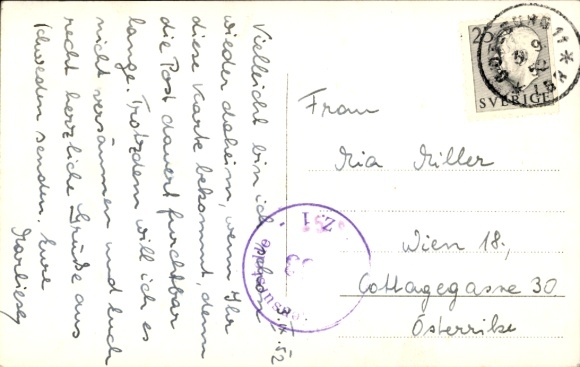 9.8.52
Vielleicht bin ich schon
wieder daheim, wenn Ihr
diese Karte bekommt, denn
die Post dauert furchtbar
lange. Trotzdem will ich es
nicht versäumen und Euch
recht herzliche Grüße aus
Schweden senden. Eure
Marlieses
Frau
Mia Miller
Wien 18.,
Cottagegasse 30
Österrike
25
SVERIGE
Z. 1